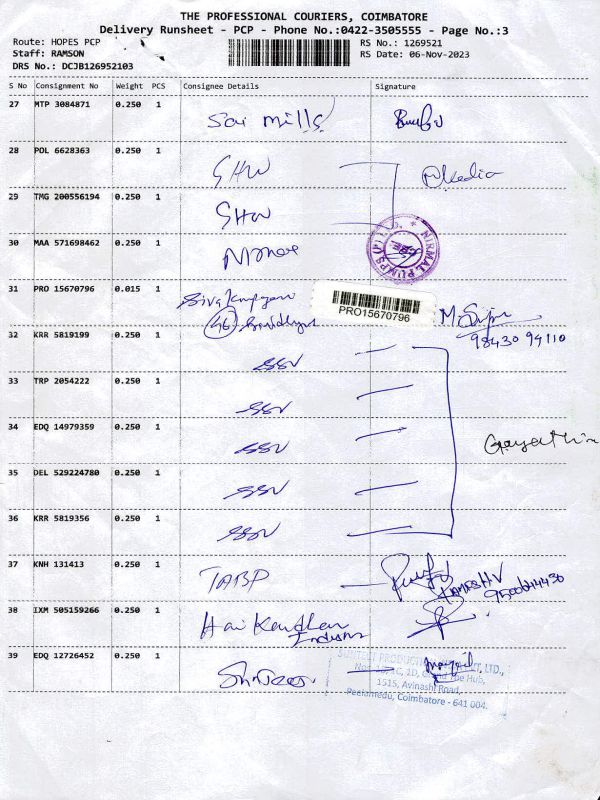 THE PROFESSIONAL COURIERS, COIMBATORE
Delivery Runsheet - PCP - Phone No.:0422-3505555 - Page No.:3
Route: HOPES PCP
RS No.: 1269521
Staff: RAMSON
RS Date: 06-Nov-2023
DRS No.: DCJB126952103
S No Consignment No Weight PCS Consignee Details Signature
27 MTP 3084871 0.250 1 Sai mills
28 POL 6628363 0.250 1 SHW Kedia
29 TMG 200556194 0.250 1 SHW
30 MAA 571698462 0.250 1
NIRMAL PUMPS (P) LTD.
31 PRO 15670796 0.015 1
PRO15670796
46
98430 94110
32 KRR 5819199 0.250 1 SSV
33 TRP 2054222 0.250 1 SSV
34 EDQ 14979359 0.250 1 SSV Gayathiri
35 DEL 529224780 0.250 1 SSV
36 KRR 5819356 0.250 1 SSV
37 KNH 131413 0.250 1 TABP
RAMESH V
38 IXM 505159266 0.250 1
39 EDQ 12726452 0.250 1
1515, Avinashi Road,
Peelamedu, Coimbatore - 641 004.